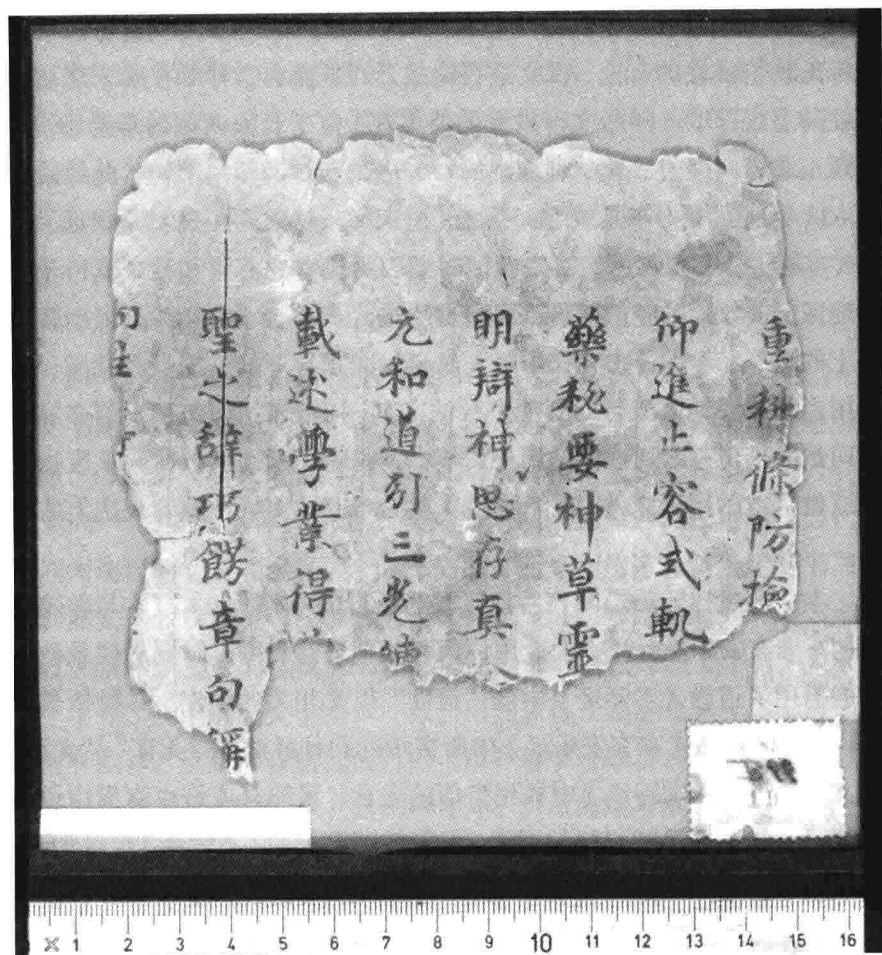 重科條防撿
仰進止容式軌
藥秘要神草靈
明辯神思存真
元和道引三光
載述學業得
聖之辭巧餝章句稱
1 2 3 4 5 6 7 8 9 10 11 12 13 14 15 16